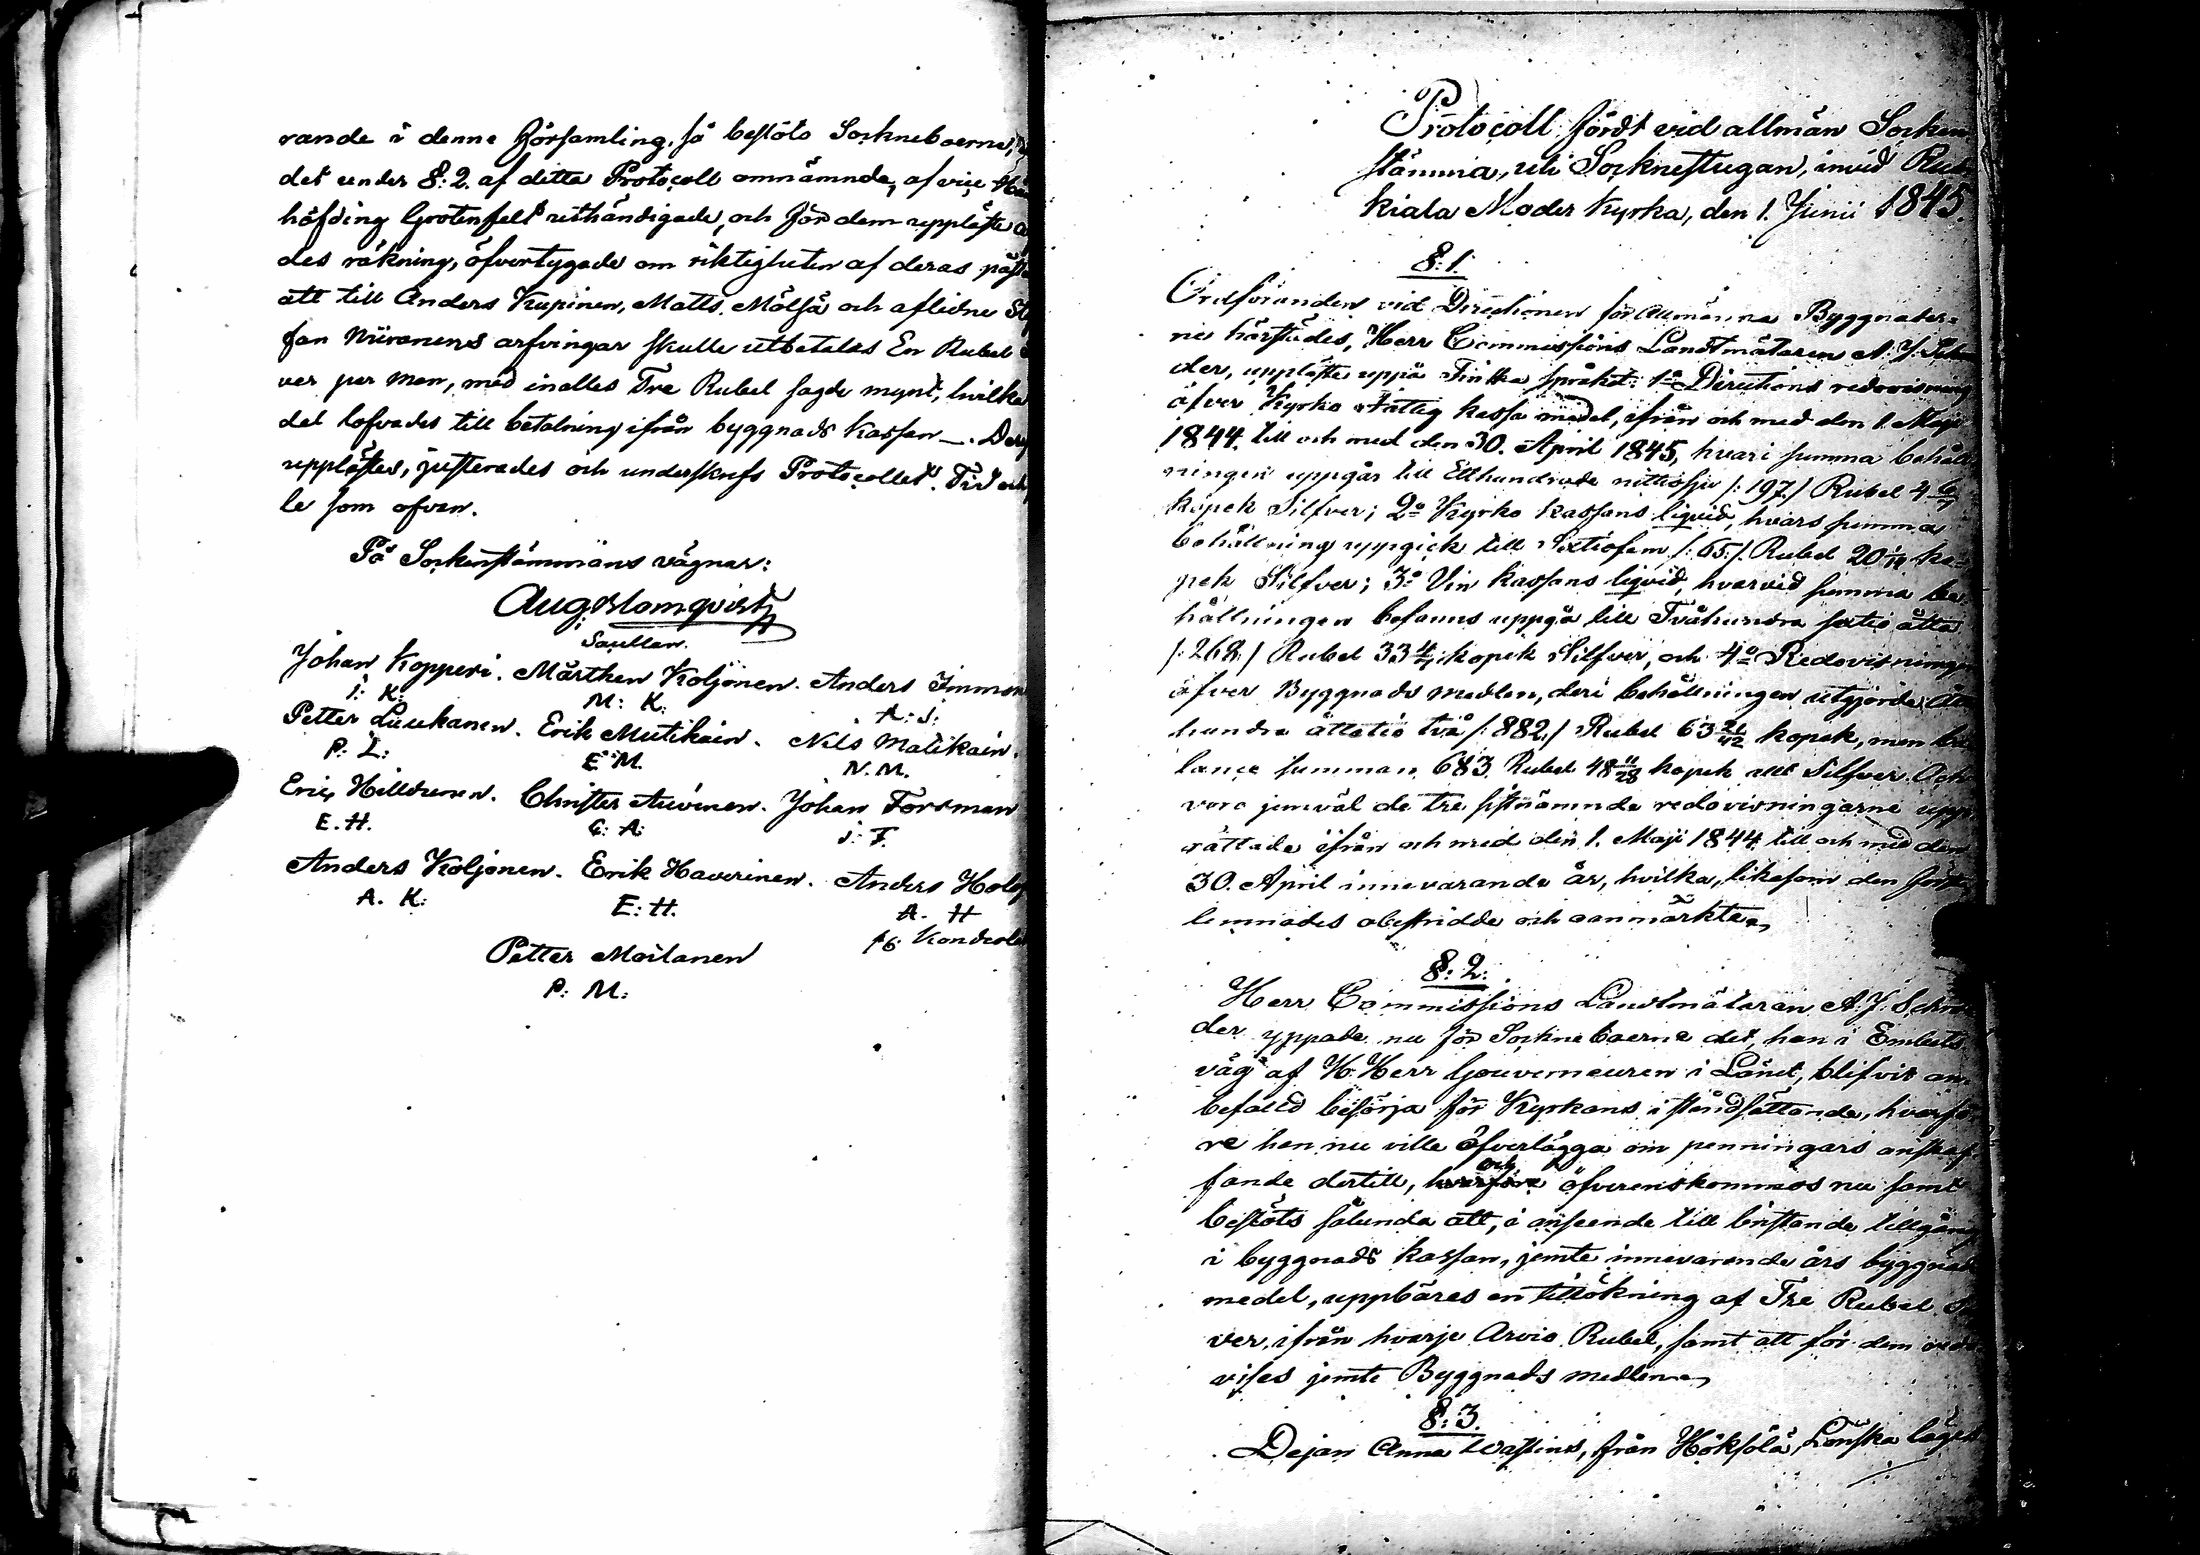 rande i denne Församling, så beslöto Sockneboerne,
det under §: 2. af ditta Protocoll omnämnda, af vice
höfding Grotenfelt uthändigade, och för dem uppläste
des räkning, öfvertygade om riktigheten af deras påst
att till Anders Kupinen, Matts Mölsä och aflidne
fan Niiranens arfvingar skulle utbetalas En Rubel
ver per Man, med inalles Tre Rubel sagde mynt, hvilka
det lofvades till betalning ifrån byggnads Kassan —.
upplästes, justerades och underskrefs Protocollet. Tid och
le som ofvan.
På Sockenstämmans vägnar:
Aug. Blomqvist
Johan Kopperi. Mårthen Koljonen. Anders Immon
J: K: M: K: A: I:
Petter Luukanen. Erik Mutikain. Nils Matikain.
P: L: E: M. N. M.
Eric Hilldunen. Christer Auvinen. Johan Forsman
E. H. C: A: J: F.
Anders Koljonen. Erik Haverinen. Anders
A. K: E: H. A. H
Petter Moilanen
P: M:
Protocoll, fördt vid allmän Socken
stämma, uti Socknestugan, invid Rus
kiala Moder Kyrka, den 1. Junii 1845.
§: 1.
Ordföranden vid Directionen för Allmänna Byggnader-
ne härstädes, Herr Commissions Landtmätaren A. J.
der, uppläste uppå Finska språket: 1o Directions redovisning
öfver Kyrko Fattig kassa medel, ifrån och med den 1. Maji
1844. till och med den 30. April 1845, hvari summa behåll
ningen uppgår till Etthundrade nittiosju /: 197./ Rubel 4 6/7
kopek Silfver; 2o Kyrko kassans liqvid, hvars summa
behållning uppgick till Sextiofem /: 65:/ Rubel 20 1/14 ko-
pek Silfver; 3o Vin kassans liqvid, hvarvid summa be-
hållningen befanns uppgå till Tvåhundra sextio åtta
/: 268./ Rubel 33 4/7 kopek Silfver, och 4o Redovisningen
öfver Byggnads medlen, deri behållningen utgjorde
hundra åttatio två /: 882./ Rubel 63 21/42 kopek, men
lance summan 683 Rubel 48 11/28 kopek allt Silfver. Och
voro jemväl de tre sistnämnda redovisningarne upp
rättade ifrån och med den 1. Maji 1844 till och med den
30. April innevarande år, hvilka, likasom den
lemnades obestridde och oanmärkta.
§: 2:
Herr Commissions Landtmätaren A. J.
der yppade nu för Sockneboerne det, han i Embets
väg af H. Herr Gouverneuren i Länet, blifvit an
befalld besörja för Kyrkans iståndsättande, hvarfö
re han nu ville öfverlägga om penningars anskaf
fande dertill, och öfverenskommos nu samt
beslöts sålunda att, i anseende till bristande tillgång
i byggnads kassan, jemte innevarande års byggnads
medel, uppbäres en tillökning af Tre Rubel
ver, ifrån hvarje Arvio Rubel, samt att för dem redo
vises jemte Byggnads medlerne,
§: 3.
Dejan Anna från